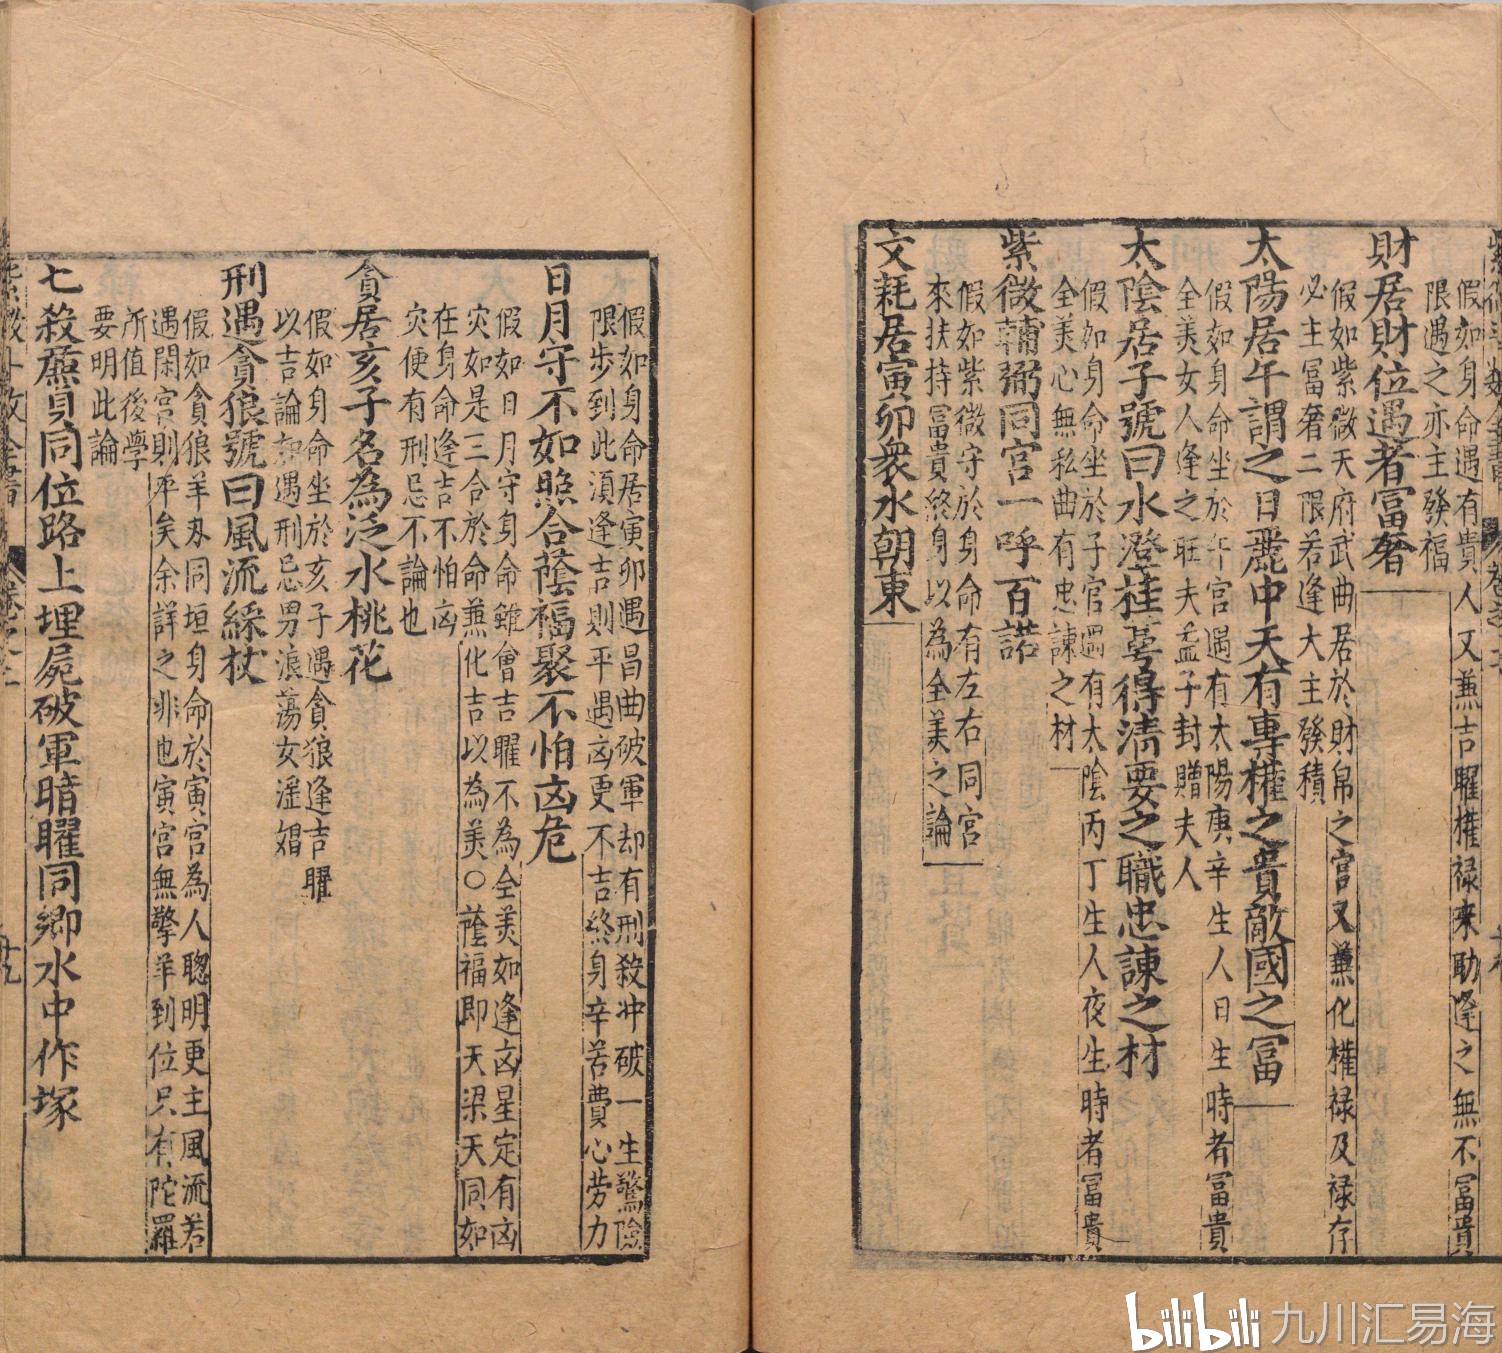 假如身命遇有貴人又無吉曜權祿來助逢之無不富貴
限遇之亦主發福
財居財位遇者富奢
假如紫微天府武曲居於財帛之宮又兼化權祿及祿存
必主富奢二限若逢大主發積
太陽居午謂之日麗中天有專權之貴敵國之富
假如身命坐於午宮遇有太陽庚辛生人日生時者富貴
全美女人逢之旺夫益子封贈夫人
太陰居子號曰水澄桂萼得清要之職忠諫之材
假如身命坐於子宮遇有太陰丙丁生人夜生時者富貴
全美心無私曲有忠諫之材
紫微輔弼同宮一呼百諾
假如紫微守於身命有左右同宮
來扶持富貴終身以為全美之論
文耗居寅卯衆水朝東
假如身命居寅卯遇昌曲破軍却有刑殺冲破一生驚險
限步到此須逢吉則平遇凶更不吉終身辛苦費心勞力
日月守不如照合蔭福聚不怕凶危
假如日月守身命雖會吉曜不為全美如逢凶星定有凶
灾如是三合於命兼化吉以為美○蔭福即天梁天同如
在身命逢吉不怕凶
灾便有刑忌不論也
貪居亥子名為泛水桃花
假如身命坐於亥子遇貪狼逢吉曜
以吉論如遇刑忌男浪蕩女淫娼
刑遇貪狼號曰風流綵杖
假如貪狼羊刃同垣身命於寅宮為人聰明更主風流若
遇閑宮則平矣余詳之非也寅宮無擎羊到位只有陀羅
所值後學
要明此論
七殺廉貞同位路上埋屍破軍暗曜同鄉水中作塚
卷之二
廿九
bilibili 九川汇易海